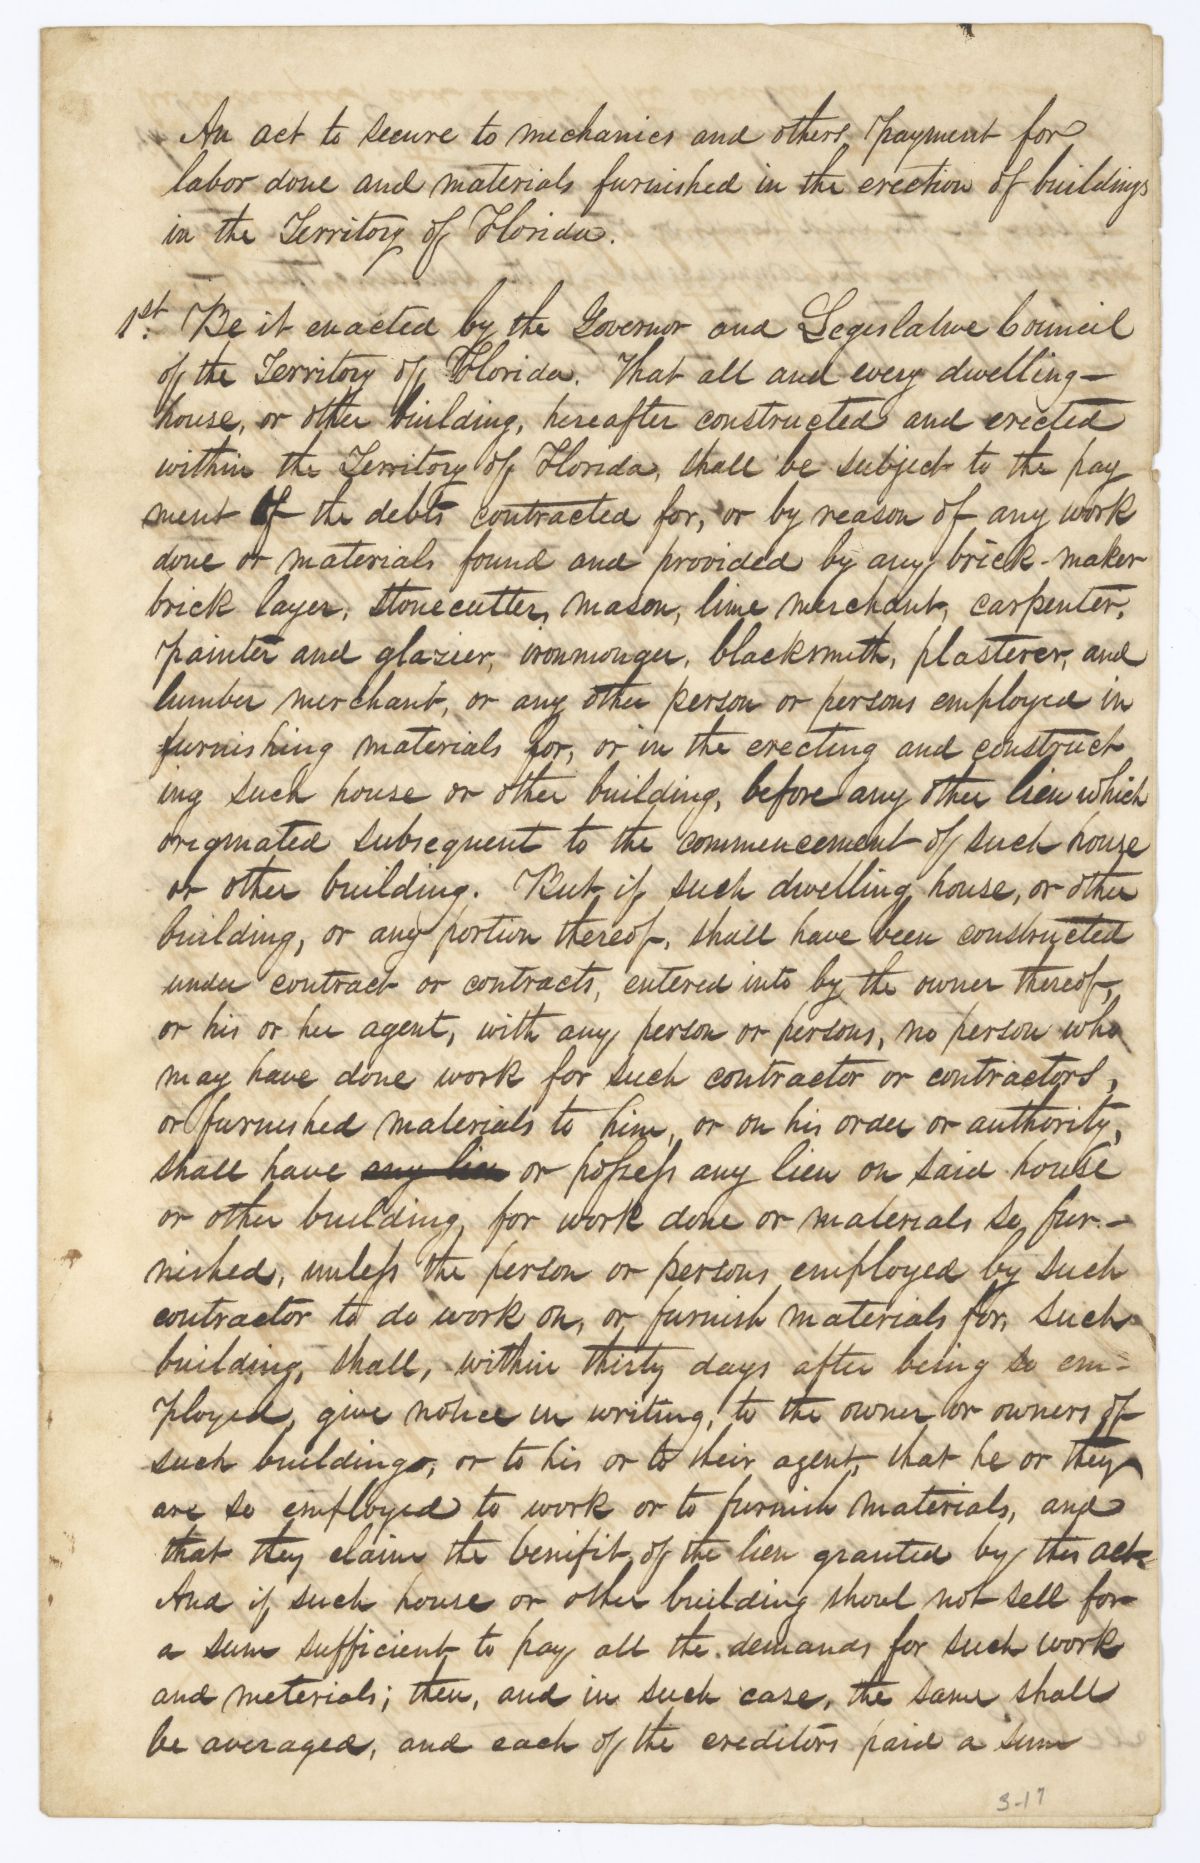 An act to secure to mechanics and others, payment for
labor done and materials furnished in the erection of buildings
in the Territory of Florida.
1st. Be it enacted by the Governor and Legislative Council
of the Territory of Florida. That all and every dwelling-
house, or other building, hereafter constructed and erected
within the Territory of Florida, shall be subject to the pay
ment of the debts contracted for, or by reason of any work
done or materials found and provided by any brick-maker
brick layer, stonecutter, mason, lime merchant, carpenter,
painter and glazier, ironmonger, blacksmith, plasterer, and
lumber merchant, or any other person or persons employed in
furnishing materials for, or in the erecting and construct
ing such house or other building, before any other lien which
originated subsequent to the commencement of such house
or other building. But if such dwelling house, or other
building, or any portion thereof, shall have been constructed
under contract or contracts, entered into by the owner thereof,
or his or her agent, with any person or persons, no person who
may have done work for such contractor or contractors,
or furnished materials to him, or on his order or authority,
shall have any lien or possess any lien on said house
or other building, for work done or materials so fur-
nished, unless the person or persons employed by such
contractor to do work on, or furnish materials for, such
building, shall, within thirty days after being so em-
ployed, give notice in writing, to the owner or owners of
such buildings, or to his or to their agent, that he or they
are so employed to work or to furnish materials, and
that they claim the benifit of the lien granted by this act.
And if such house or other building shoul not sell for
a sum sufficient to pay all the demands for such work
and meterials; then, and in such case, the same shall
be averaged, and each of the creditors paid a sum
3-17